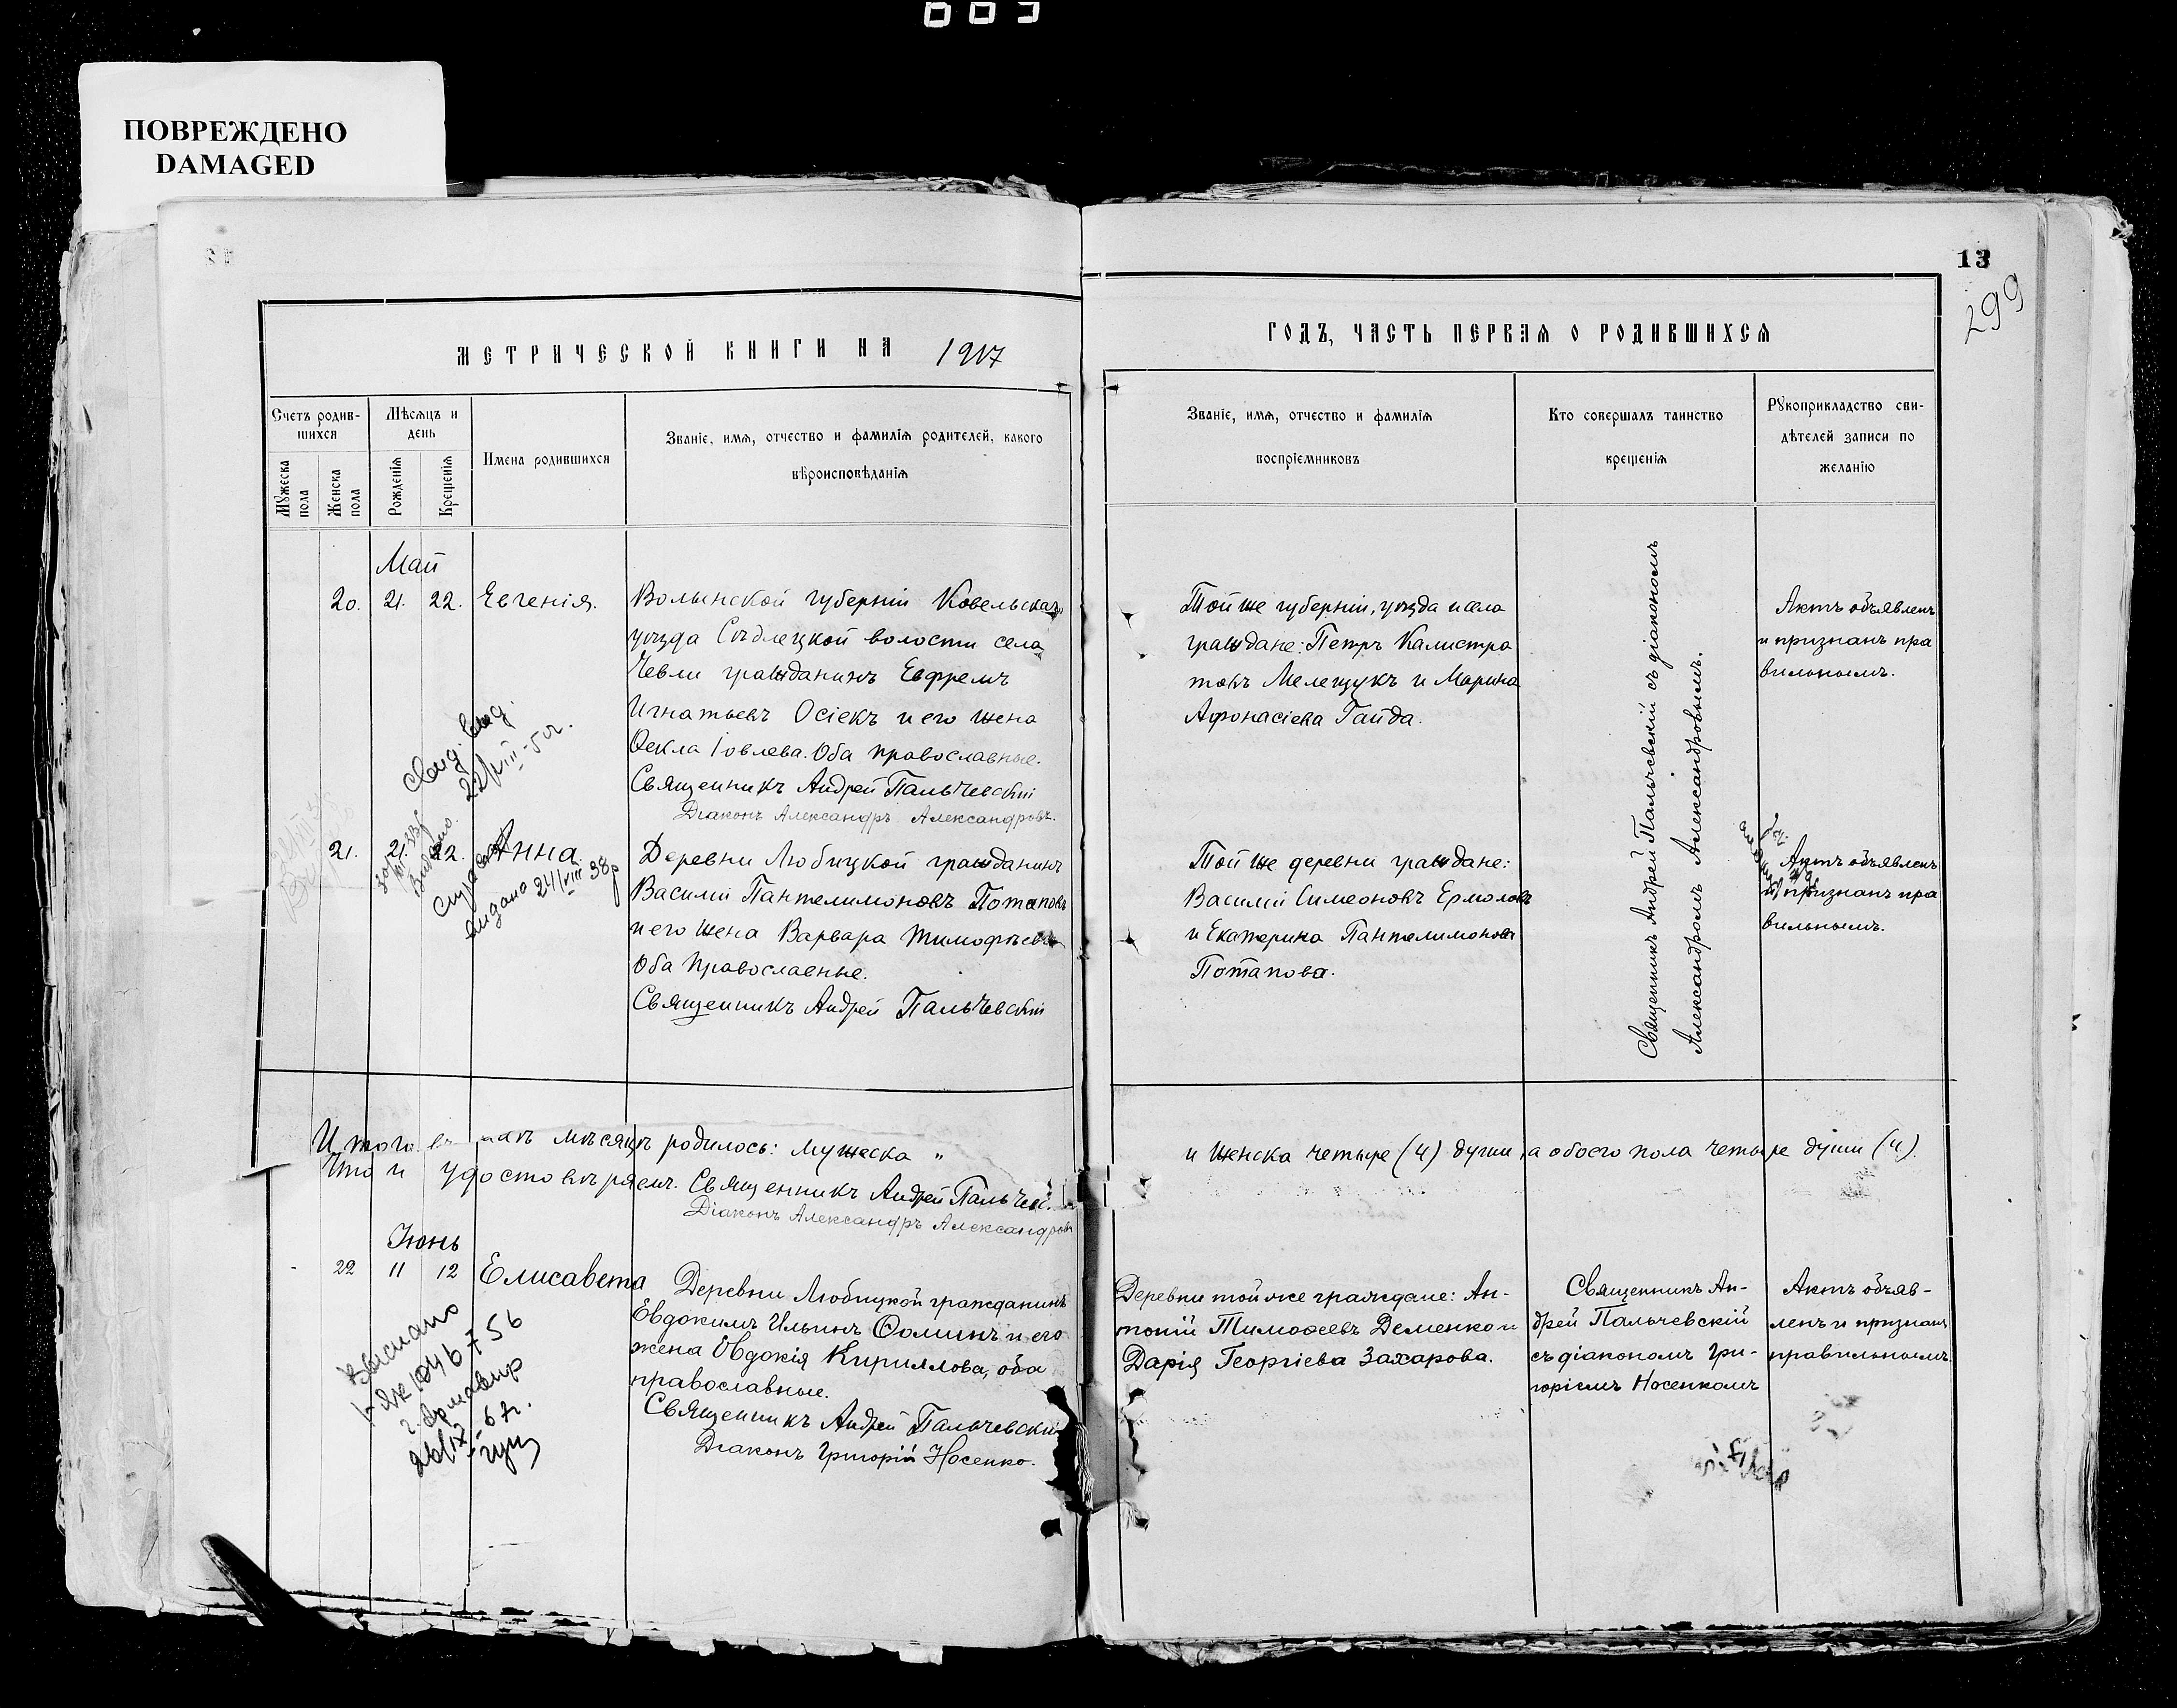 003
ПОВРЕЖДЕНО
DAMAGED
МЕТРИЧЕСКОЙ КНИГИ НА 1917
Счетъ родив-
шихся
Мужеска пола
Женска пола
Мѣсяцъ и
день
Рожденія
Крещенія
Имена родившихся
Званіе, имя, отчество и фамилія родителей, какого
вѣроисповѣданія
Май
20. 21. 22. Евгенія.
Волынской губерніи Ковельскаго
уѣзда Сѣдлецкой волости села
Чевли гражданинъ Евфремъ
Игнатьевъ Осіекъ и его жена
Ѳекла Іовлева. Оба православные.
Священникъ Андрей Пальчевскій
Діаконъ Александръ Александровъ.
22/VIII-50г.
21. 21. 22. Анна.
24/VIII 38р
Деревни Любицкой гражданинъ
Василій Пантелимоновъ Потаповъ
и его жена Варвара Тимофѣева
Оба православные.
Священникъ Андрей Пальчевскій
Итого въ маѣ мѣсяцѣ родилось: мужеска "
Что и удостовѣряемъ. Священникъ Андрей Пальчевс.
Діаконъ Александръ Александровъ
Іюнь
22 11 12 Елисавета
Деревни Любицкой гражданинъ
Евдокимъ Ильинъ Ѳоминъ и его
жена Овдокія Кириллова, оба
православные.
Священникъ Андрей Пальчевскій
Діаконъ Григорій Носенко.
Выслано
г. Армавир
13
299
ГОДЪ, ЧАСТЬ ПЕРВАЯ О РОДИВШИХСЯ
Званіе, имя, отчество и фамилія
воспріемниковъ
Кто совершалъ таинство
крещенія
Рукоприкладство сви-
дѣтелей записи по
желанію
Той же губерніи, уѣзда и села
граждане: Петръ Калистра
товъ Мелещукъ и Марина
Афонасіева Гайда.
Священникъ Андрей Пальчевскій съ діакономъ
Александромъ Александровымъ.
Актъ объявленъ
и признанъ пра
вильнымъ.
Той же деревни граждане:
Василій Симеоновъ Ермоловъ
и Екатерина Пантелимонова
Потапова.
Актъ объявленъ
и признанъ пра
вильнымъ.
и женска четыре (4) души, а обоего пола четыре души (4).
Деревни той же граждане: Ан-
тоній Тимоѳеевъ Деменко и
Дарія Георгіева Захарова.
Священникъ Ан-
дрей Пальчевскій
съ діакономъ Гри-
горіемъ Носенкомъ
Актъ объяв-
ленъ и признанъ
правильнымъ.